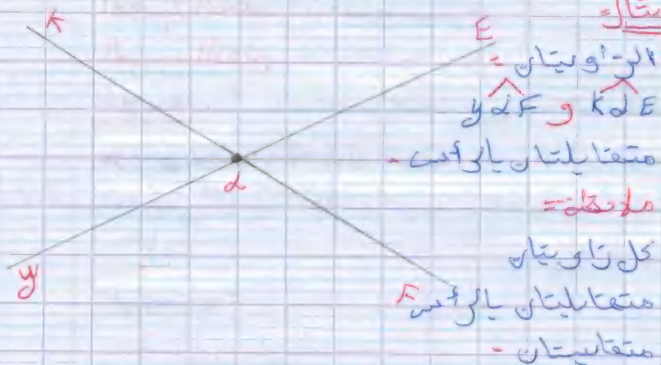 مثال:
الزاويتان:
KdE و ydF
متقابلتان بالرأس.
ملاحظة:
كل زاويتان
متقابلتان بالرأس
متقايستان.
K
E
d
y
F